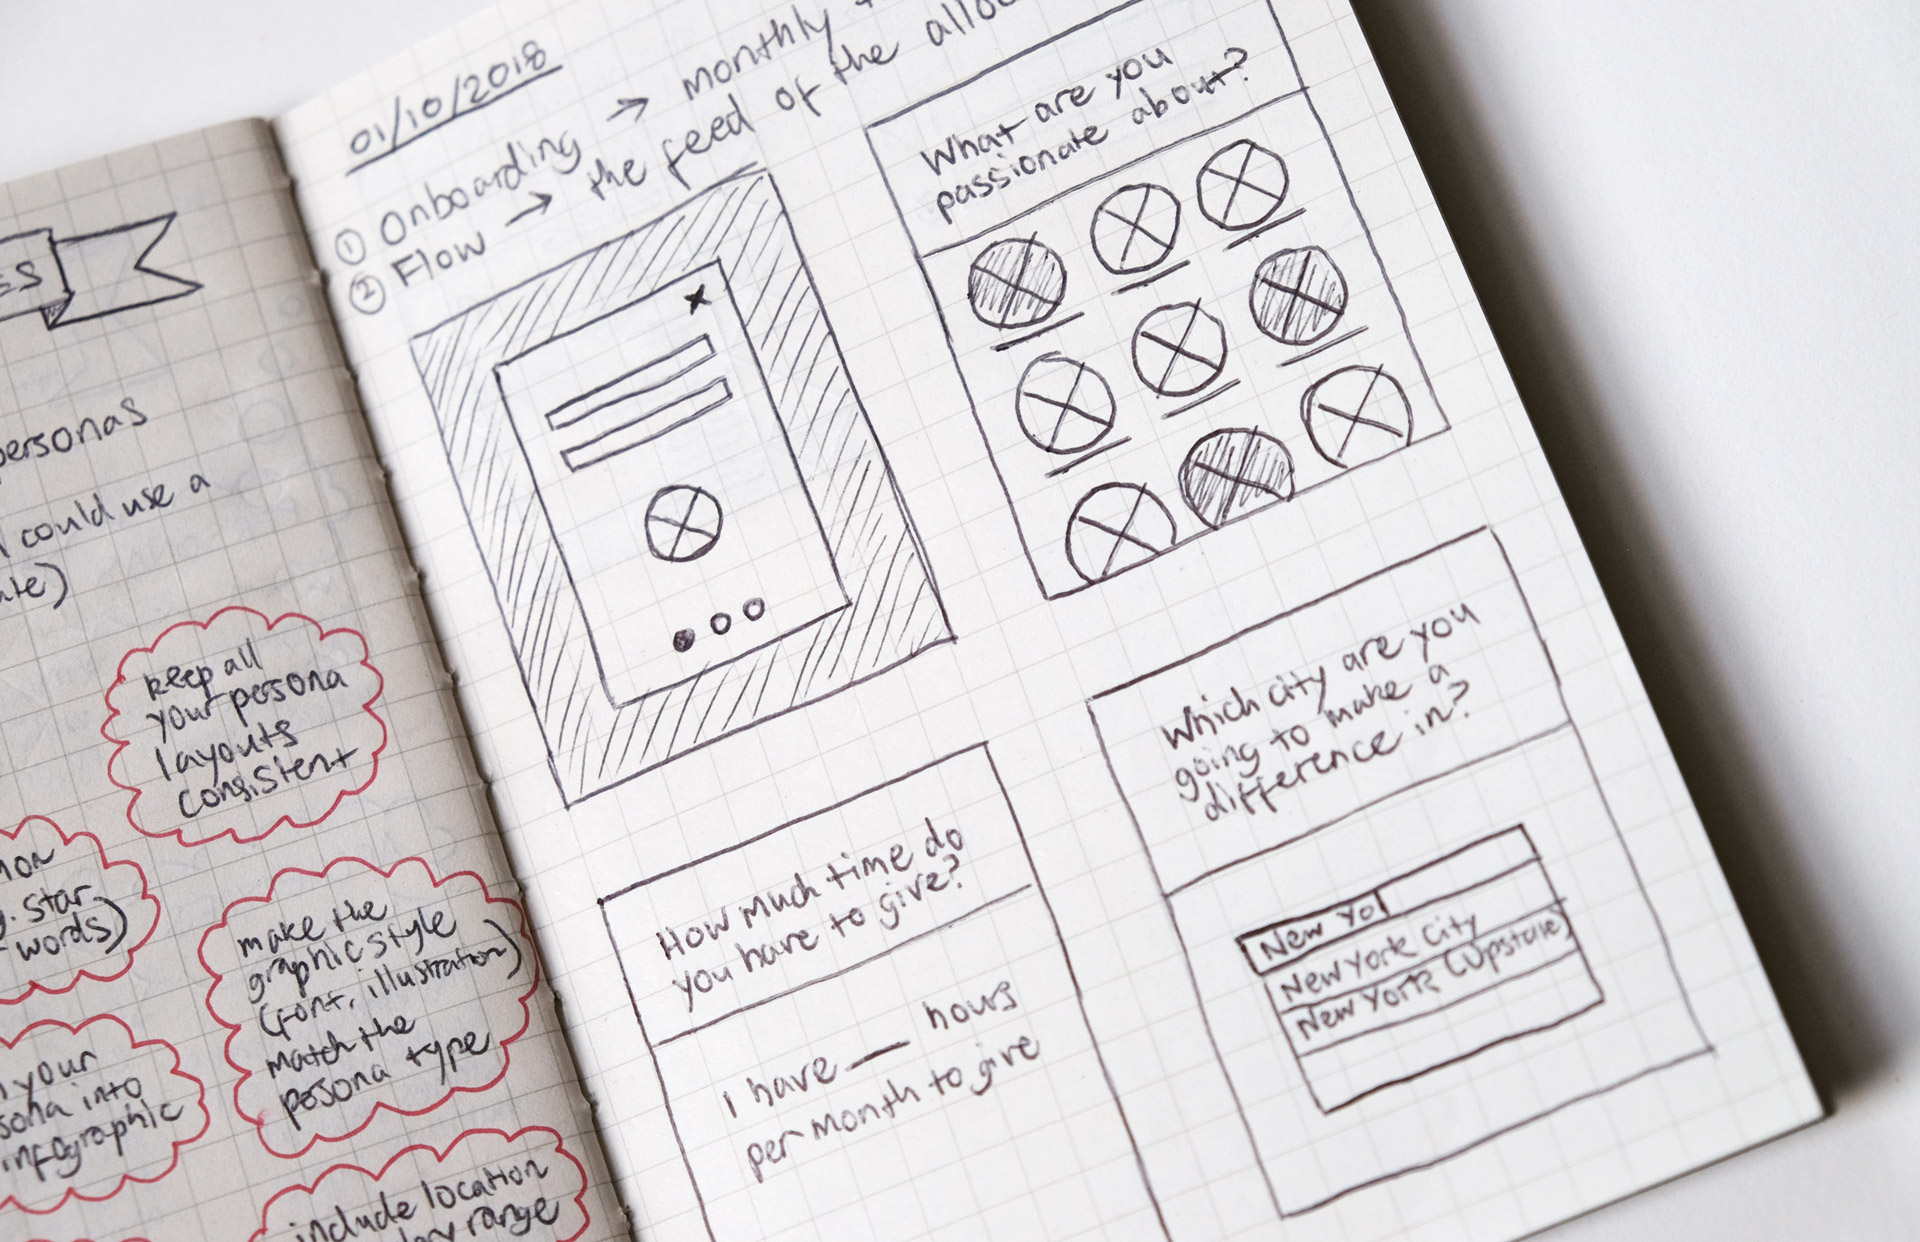 personas
could use a
keep all
your persona
layouts
consistent
star
words)
make the
graphic style
(font, illustration)
match the
persona type
your
into
infographic
include location
range
01/10/2018
① Onboarding → monthly
② Flow → the feed of the
What are you
passionate about?
x
How much time do
you have to give?
I have __ hours
per month to give
Which city are you
going to make a
difference in?
New Yo
New York City
New York (Upstate)